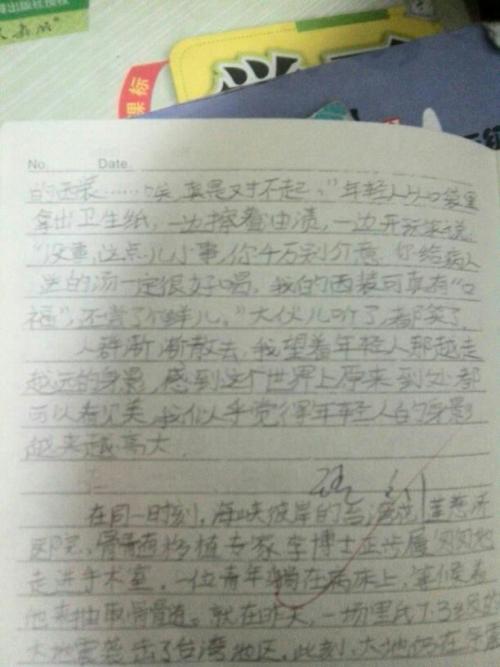 课标
No.
Date.
的西装……唉,真是对不起。”年轻人从口袋里
拿出卫生纸,一边擦着油渍,一边开玩笑说,
“没事,这点儿小事,你千万别介意。你给病人
送的汤一定很好喝,我的西装可真有“口
福”,还尝了个鲜儿。”大伙儿听了,都笑了。
人群渐渐散去,我望着年轻人那越走
越远的身影,感到这个世界上原来到处都
可以看见美,我似乎觉得年轻人的身影
越来越高大。
在同一时刻,海峡彼岸的台湾花莲慈济
医院,骨髓移植专家李博士正步履匆匆地
走进手术室。一位青年躺在病床上,等候着
他来抽取骨髓。就在昨天,一场里氏7.3级的
大地震袭击了台湾地区,此刻,大地仍在